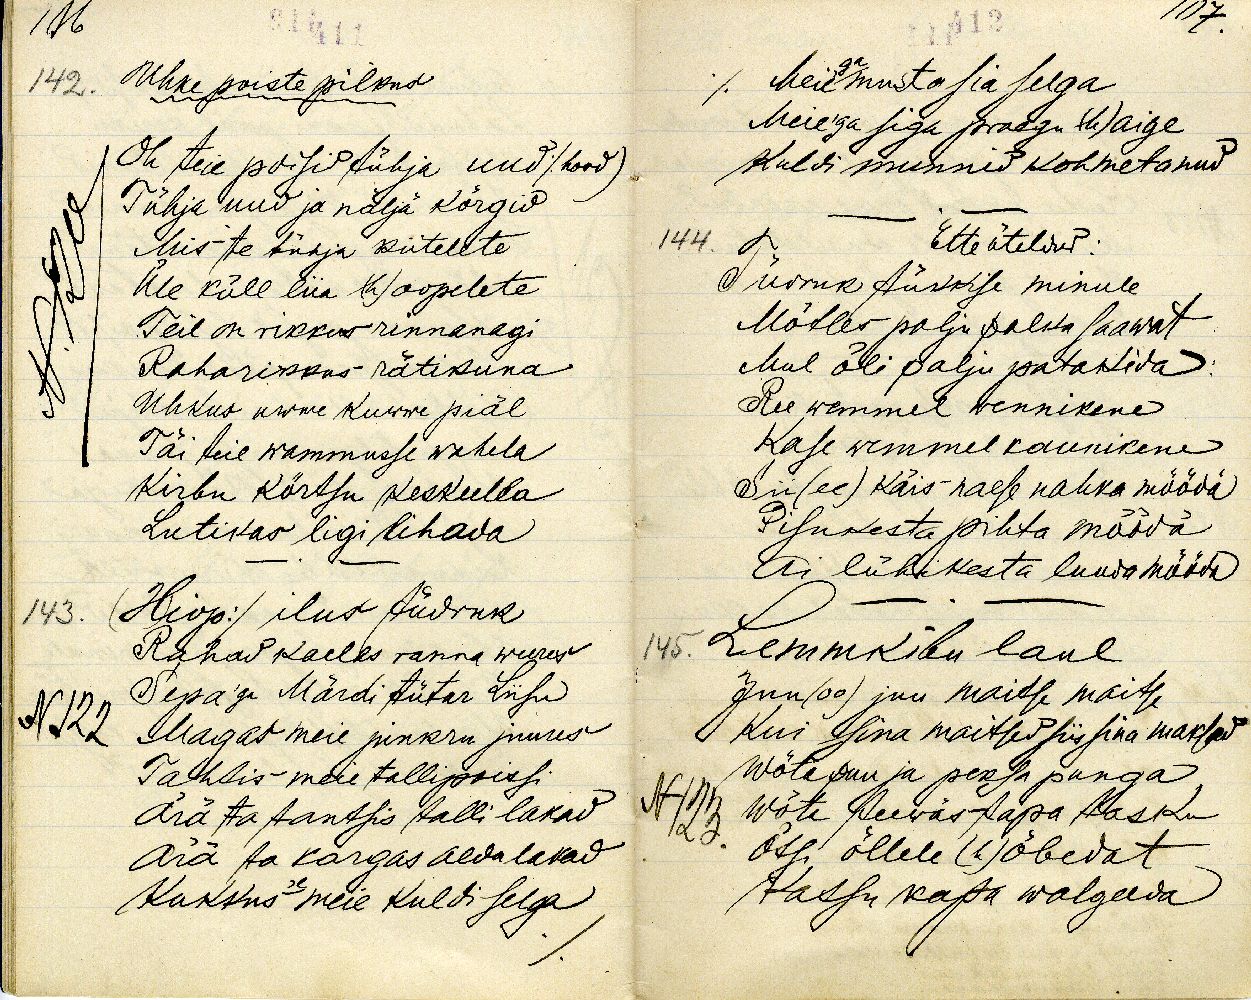 116
142. Uhke poiste pilkus
Oh teie poisid tühja uud /: hood)
Tühja uud ja nälja körgid
Mis te tühja kiitelete
Üle küll liia (h)oopelete
Teil on rikkus rinnanagi
Raharikkus rätikuna
Uhkus uwwe kuwwe piäl
Täi teil wammusse wahela
Kirbu körtsu keskeella
Lutikas ligi lihada
143. (Hiop:) ilus tüdruk
Rahad kaelas ranna weeres
Sepa'ga Märdi tütar Liisu
N122 Magas meie junkru juures
Tahtis meie tallipoissi
Ärä ta tantsis talli lakad
Ärä ta kargas aeda lakad
Kukkus meie kuldi selga
./.
117.
./. Meie ga musta sia selga
Meie'ga siga praegu (h)aige
Kuldi munnid kohmetanud
144. Etteüteldud:
Tüdruk türkise minule
Mötles palju palka saawat
Mul öli palju patakida:
Ree wemmel wennikene
Kase wemmel kaunikene
Sii(ee) käis naese nahka möödä
Pisukesta pihta möödä
Ai lühikesta luuda mööda
145. Lemmkibu laul
Juu(oo) juu maitse maitse
Kui sina maitsed siis sina maksad
Wöta suu ja peksa punga
N123. Wöta teewäs tapa tasku
Ötsi öllele (h)öbedat
Kassu kapa walgeda